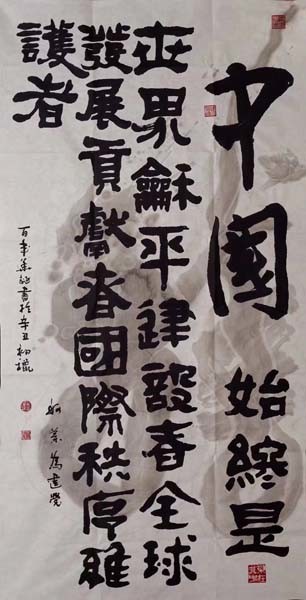 中國始終是
世界龢平建設者全球
發展貢獻者國際秩序維
護者
為建黨
百年華誕書於辛丑